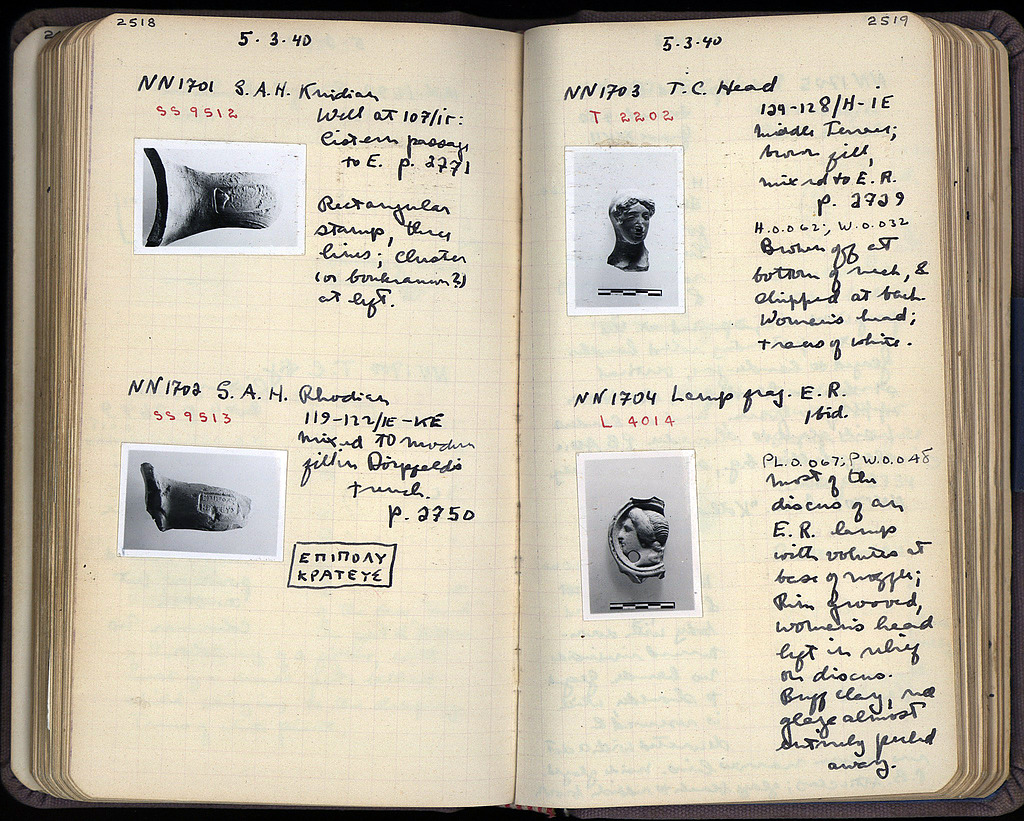 2518
5·3·40
NN1701 S.A.H. Knidian
SS 9512
Well at 107/ΙΓ:
Cistern passage
to E. p. 2771
Rectangular
stamp, three
lines; cluster
(or boukranion?)
at left.
NN1702 S.A.H. Rhodian
SS 9513
119-122/ΙΕ-ΚΕ
mixed to modern
fill in Dörpfeld's
trench.
p. 2750
ΕΠΙΠΟΛΥ
ΚΡΑΤΕΥΣ
2519
5-3-40
NN1703 T.C. Head
T 2202
129-128/Η-ΙΕ
Middle Terrace;
brown fill,
mixed to E.R.
p. 2729
H.0.062; W.0.032
Broken off at
bottom of neck, &
chipped at back.
Women's head;
traces of white.
NN1704 Lamp frag. E.R.
L 4014
Ibid.
PL.0.067; PW.0.048
Most of the
discus of an
E.R. lamp
with volutes at
base of nozzle;
Rim grooved,
women's head
left in relief
on discus.
Buff clay, red
glaze almost
entirely peeled
away.